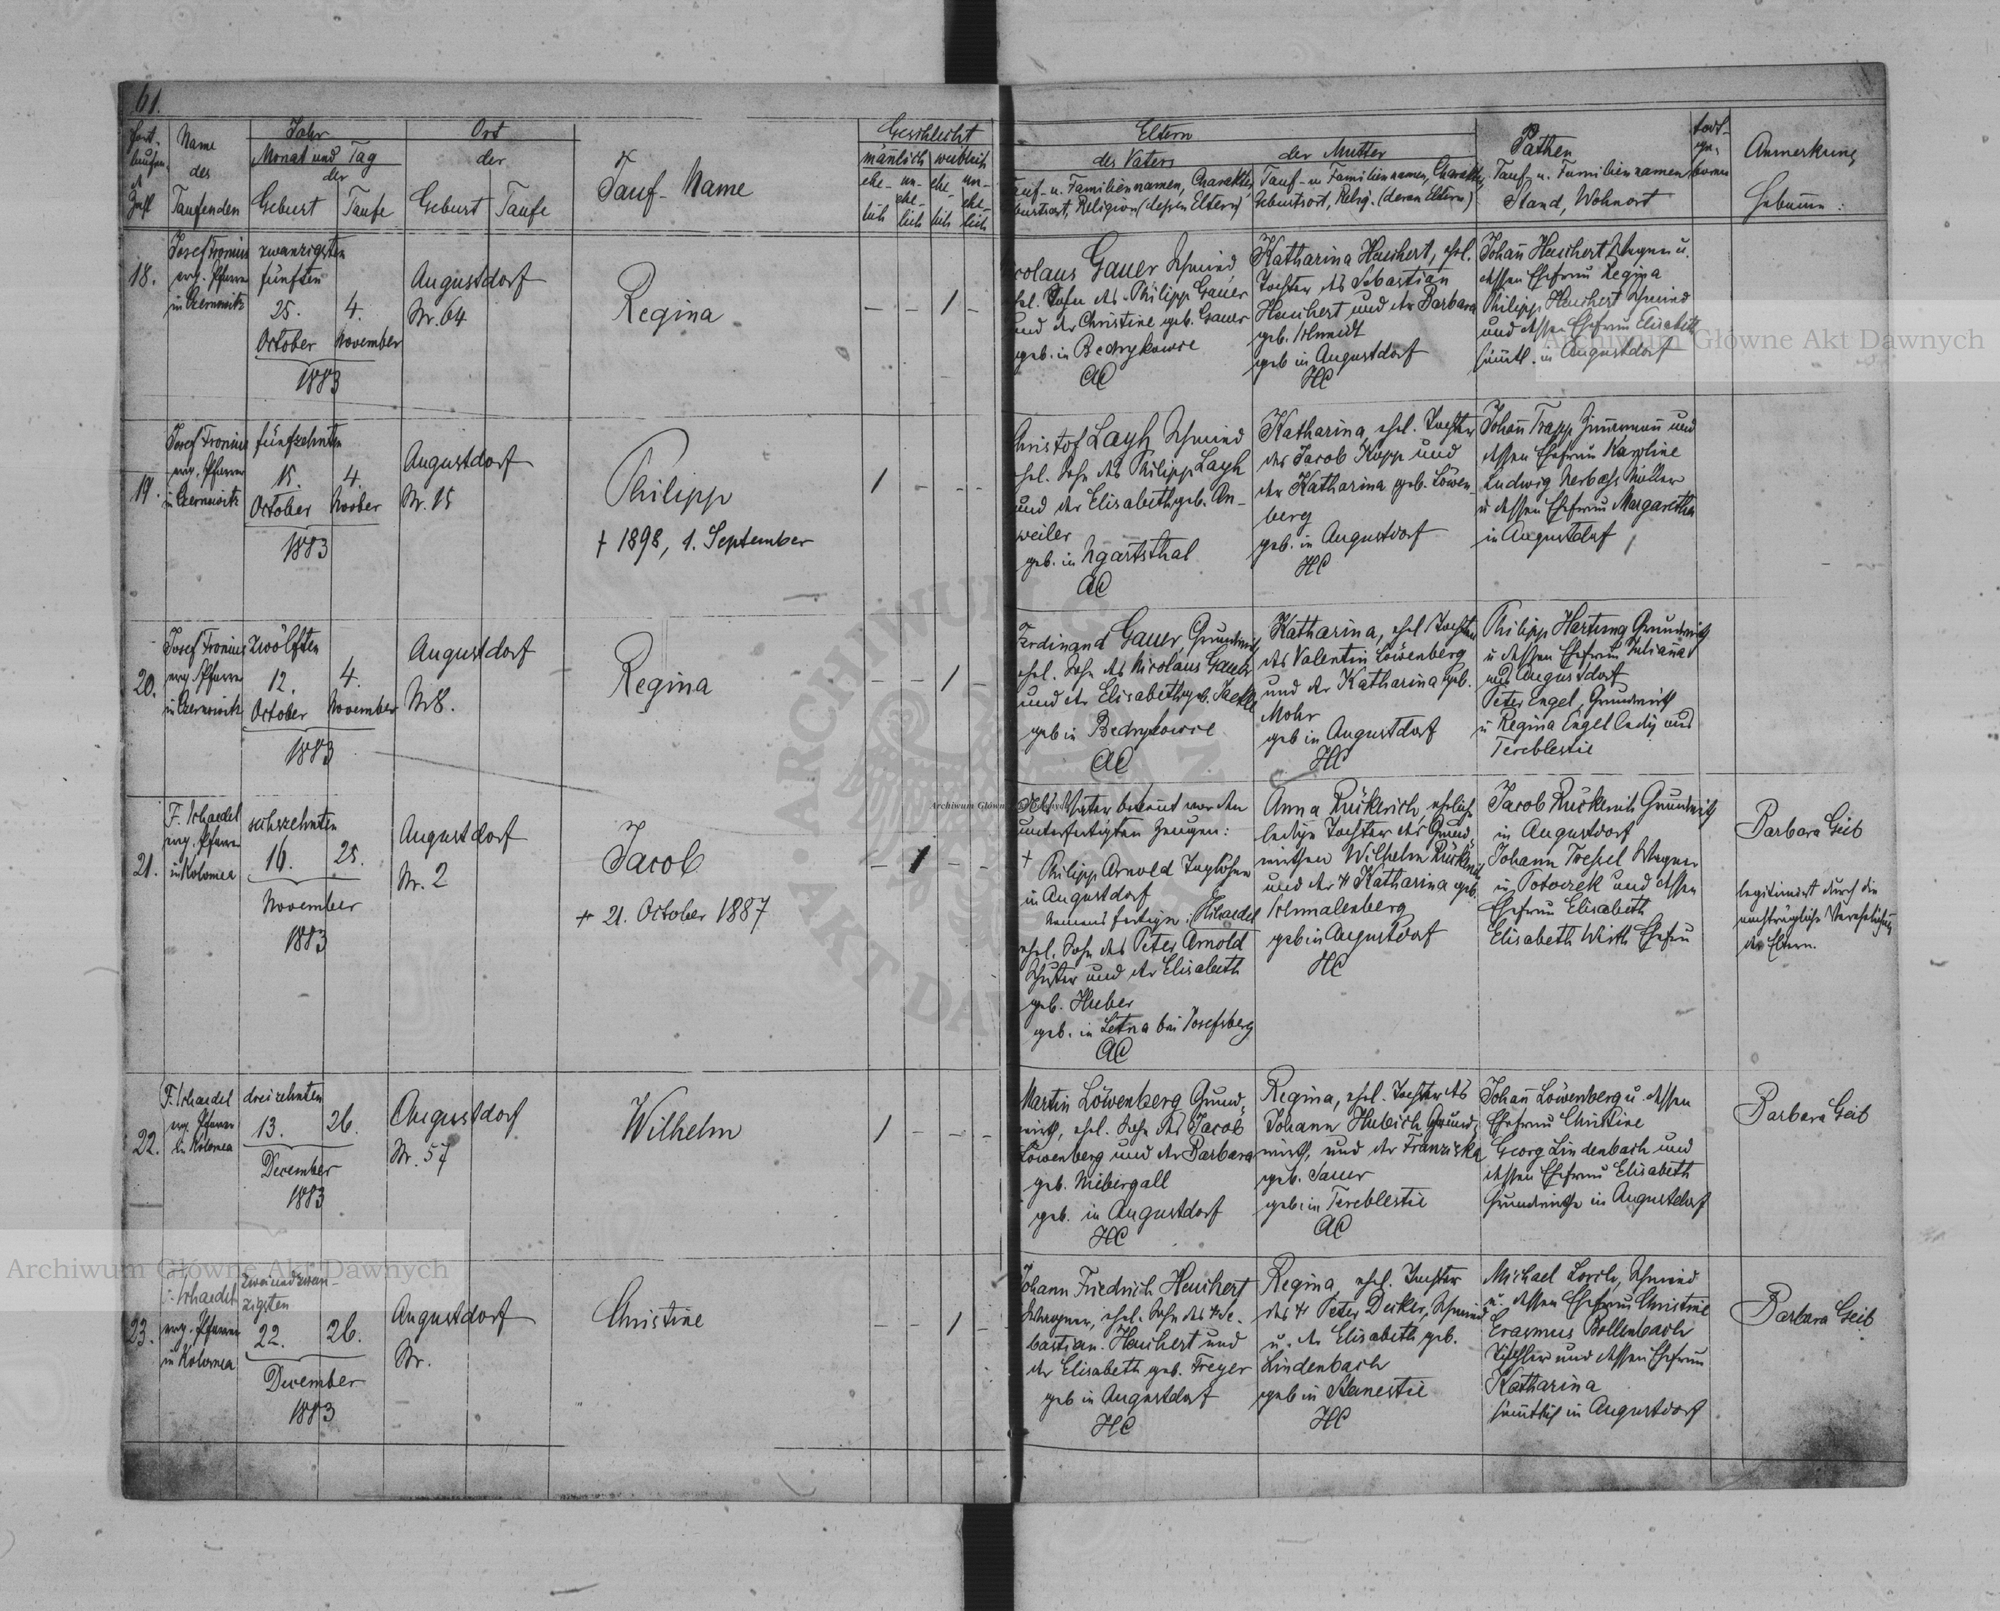 61.
Fort-
laufende
Zahl
Name
des
Taufenden
Jahr
Monat und Tag
der
Geburt
Taufe
Ort
der
Geburt
Taufe
Tauf-Name
Geschlecht
mänlich
weiblich
ehe-
lich
un-
ehe-
lich
ehe-
lich
un-
ehe-
lich
Eltern
des Vaters
Tauf- u. Familiennamen, Charakter,
Geburtsort, Religion (dessen Eltern)
der Mutter
Tauf- u. Familiennamen, Charakter,
Geburtsort, Relig. (deren Eltern)
Pathen
Tauf- u. Familiennamen
Stand, Wohnort
todt-
ge-
boren
Anmerkung
Hebamme:
18.
Josef Fronius
evg. Pfarrer
in Czernowitz
zwanzigsten
fünften
25.
October
4.
November
1883
Augustdorf
Nr. 64
Regina
— — 1 —
Nicolaus Gauer Schmied,
ehel. Sohn des Philipp Gauer
und der Christine geb. Gauer
geb. in Bedrykowce
AC
Katharina Heuchert, ehel.
Tochter des Sebastian
Heuchert und der Barbara
geb. Schmidt
geb in Augustdorf
HC
Johañ Heuchert Wagner u.
dessen Ehefrau Regina
Philipp Heuchert Schmied
und dessen Ehefrau Elisabeth
sämtl. in Augustdorf
19.
Josef Fronius
evg. Pfarrer
in Czernowitz
fünfzehnten
15.
October
4.
November
1883
Augustdorf
Nr. 15
Philipp
+ 1898, 1. September
1 — — —
Christof Layh Schmied
ehel. Sohn des Philipp Layh
und der Elisabeth geb. An-
weiler
geb. in Ugartsthal
AC
Katharina, ehel. Tochter
des Jacob Kopp und
der Katharina geb. Löwen-
berg
geb. in Augustdorf
HC
Johañ Trapp Zimmermañ und
dessen Ehefrau Karoline
Ludwig Nerbass Müller
u dessen Ehefrau Margaretha
in Augustdorf
20.
Josef Fronius
evg. Pfarrer
in Czernowitz
zwölften
12.
October
4.
November
1883
Augustdorf
Nr 8.
Regina
— — 1 —
Ferdinand Gauer, Grundwirth
ehel. Sohn des Nicolaus Gauer
und der Elisabeth geb. Jaekle
geb in Bedrykowce
AC
Katharina, ehel Tochter
des Valentin Löwenberg
und der Katharina geb.
Mohr
geb in Augustdorf
HC
Philipp Hartung Grundwirth
u dessen Ehefrau Juliana
aus Augustdorf
Peter Engel, Grundwirth
u Regina Engel ledig aus
Tereblestie
21.
F. Schaedel
evg. Pfarrer
in Kolomea
sechszehnten
16.
25.
November
1883
Augustdorf
Nr. 2
Jacob
+ 21. October 1887
— 1 — —
Als Vater bekennt vor den
unterfertigten Zeugen:
+ Philipp Arnold Taglöhner
in Augustdorf
Namensfertiger: FSchaedel
ehel. Sohn des Peter Arnold
Schuster und der Elisabeth
geb. Huber
geb. in Letna bei Josefsberg
AC
Anna Rückerich, eheliche
ledige Tochter des Grund-
wirthen Wilhelm Rückerich
und der + Katharina geb.
Schmalenberg
geb in Augustdorf
HC
Jacob Rückerich Grundwirth
in Augustdorf
Johann Toepel Wagner
in Potoczek und dessen
Ehefrau Elisabeth
Elisabeth Wirth Ehefrau
Barbara Geib
legitimiert durch die
nachträgliche Verehelichung
der Eltern.
22.
F. Schaedel
evg. Pfarrer
in Kolomea
dreizehnten
13.
26.
December
1883
Augustdorf
Nr. 57
Wilhelm
1 — — —
Martin Löwenberg Grund-
wirth, ehel. Sohn des Jacob
Löwenberg und der Barbara
geb. Nibergall
geb. in Augustdorf
HC
Regina, ehel. Tochter des
Johann Hubich Grund-
wirth, und der Franziska
geb. Sauer
geb in Tereblestie
AC
Johañ Löwenberg u. dessen
Ehefrau Christine
Georg Lindenbach und
dessen Ehefrau Elisabeth
Grundwirthe in Augustdorf
Barbara Geib
23.
F. Schaedel
evg. Pfarrer
in Kolomea
zweiundzwan-
zigsten
22.
26.
December
1883
Augustdorf
Nr.
Christine
— — 1 —
Johann Friedrich Heuchert
Wagner, ehel. Sohn des + Se-
bastian Heuchert und
der Elisabeth geb. Freyer
geb in Augustdorf
HC
Regina, ehel. Tochter
des + Peter Decker, Schmied
u. der Elisabeth geb.
Lindenbach
geb in Stanestie
HC
Michael Lorch, Schmied
u. dessen Ehefrau Christine
Erasmus Bollenbach
Tischler und dessen Ehefrau
Katharina
sämtlich in Augustdorf
Barbara Geib
Archiwum Główne Akt Dawnych
Archiwum Główne Akt Dawnych